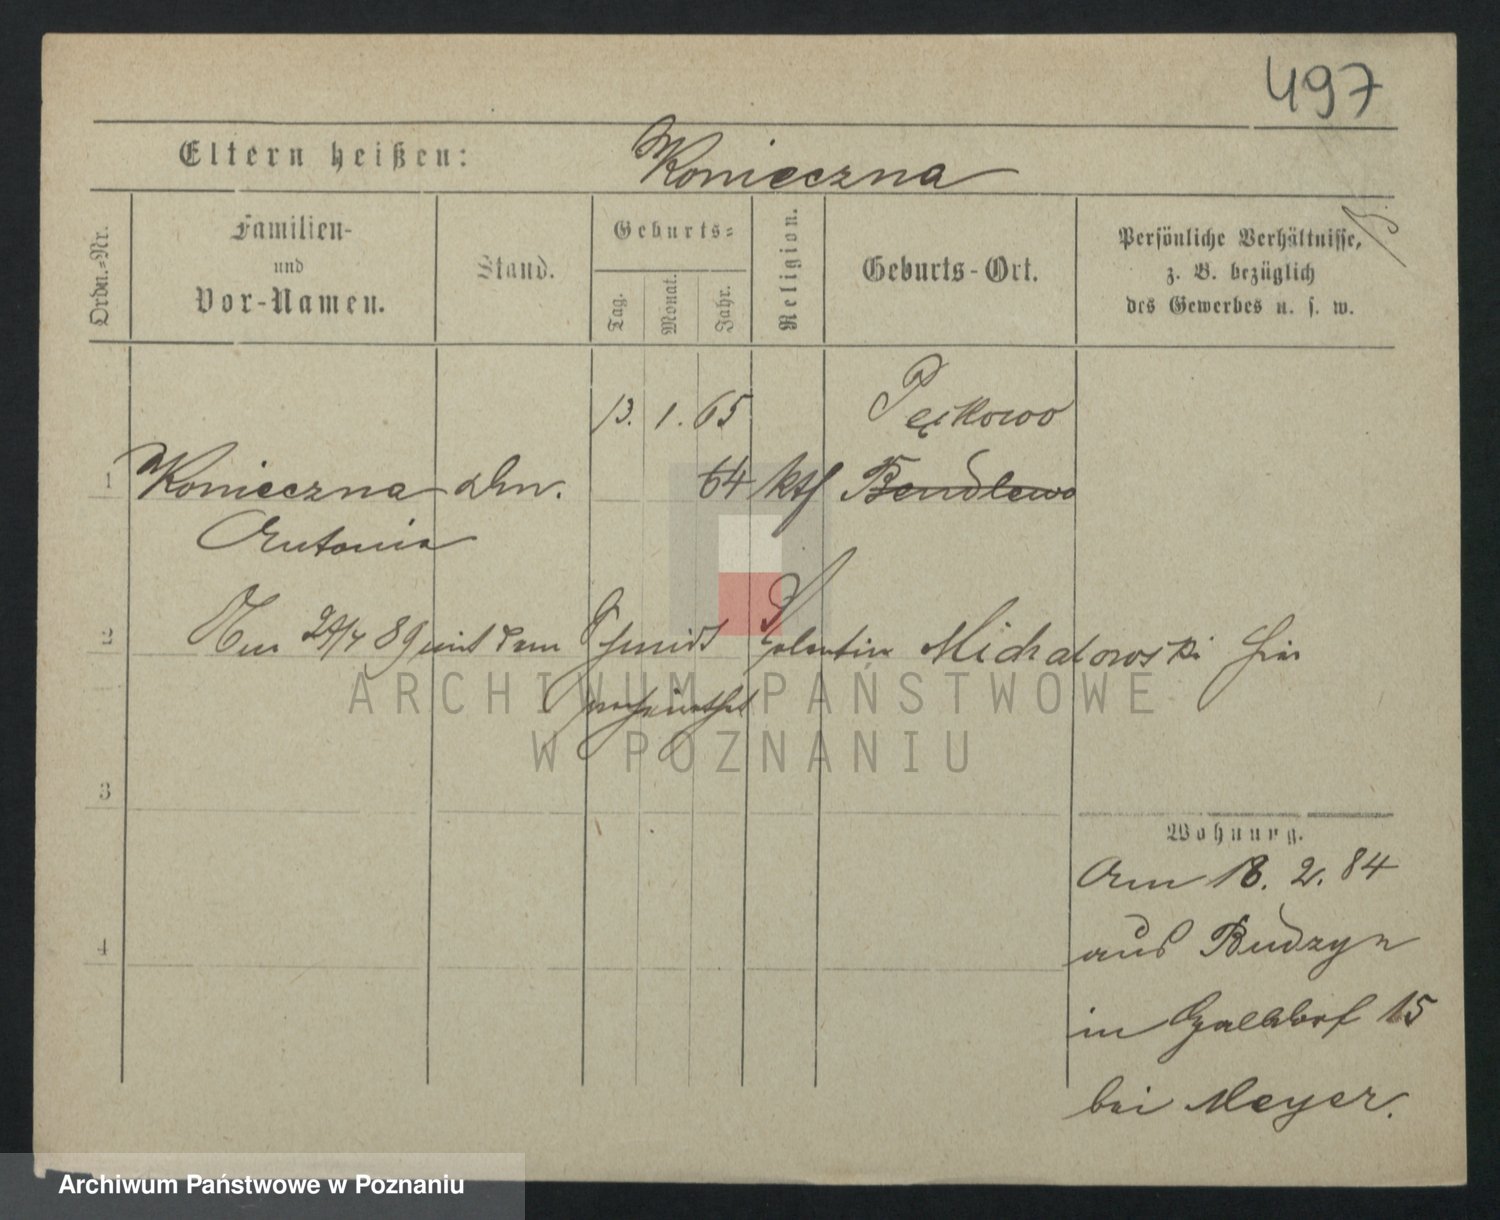 497
Eltern heißen: Konieczna
Ordn.-Nr.
Familien-
und
Vor-Namen.
Stand.
Geburts-
Tag.
Monat.
Jahr.
Religion.
Geburts-Ort.
Persönliche Verhältnisse,
z. B. bezüglich
des Gewerbes u. s. w.
13. 1. 65 Peckowo
1 Konieczna 64 kth Bendlewo
Antonia
2 Am 29/4 89 mit dem Schmidt Valentin Michalowski hier
verheirathet
ARCHIWUM PAŃSTWOWE
W POZNANIU
3
Wohnung.
Am 18. 2. 84
4
aus Budzyn
in 15
bei Meyer.
Archiwum Państwowe w Poznaniu